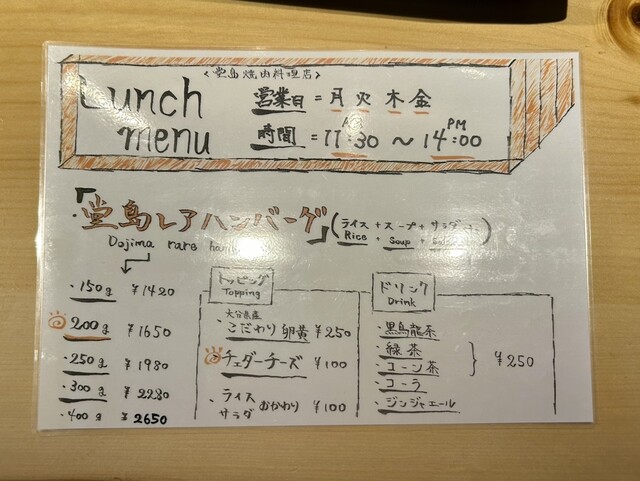 <堂島焼肉料理店>
Lunch menu
営業日 = 月 火 木 金
時間 = AM 11:30 ～ PM 14:00
「堂島レアハンバーグ」(ライス+スープ+サラダ
Dojima rare
Rice + Soup +
・150g ¥1420
200g ¥1650
・250g ¥1980
・300g ¥2280
・400g ¥2650
トッピング
Topping
大分県産
・こだわり卵黄 ¥250
チェダーチーズ ¥100
・ライス サラダ おかわり ¥100
ドリンク
Drink
・黒烏龍茶
・緑茶
・コーン茶
・コーラ
・ジンジャエール
¥250